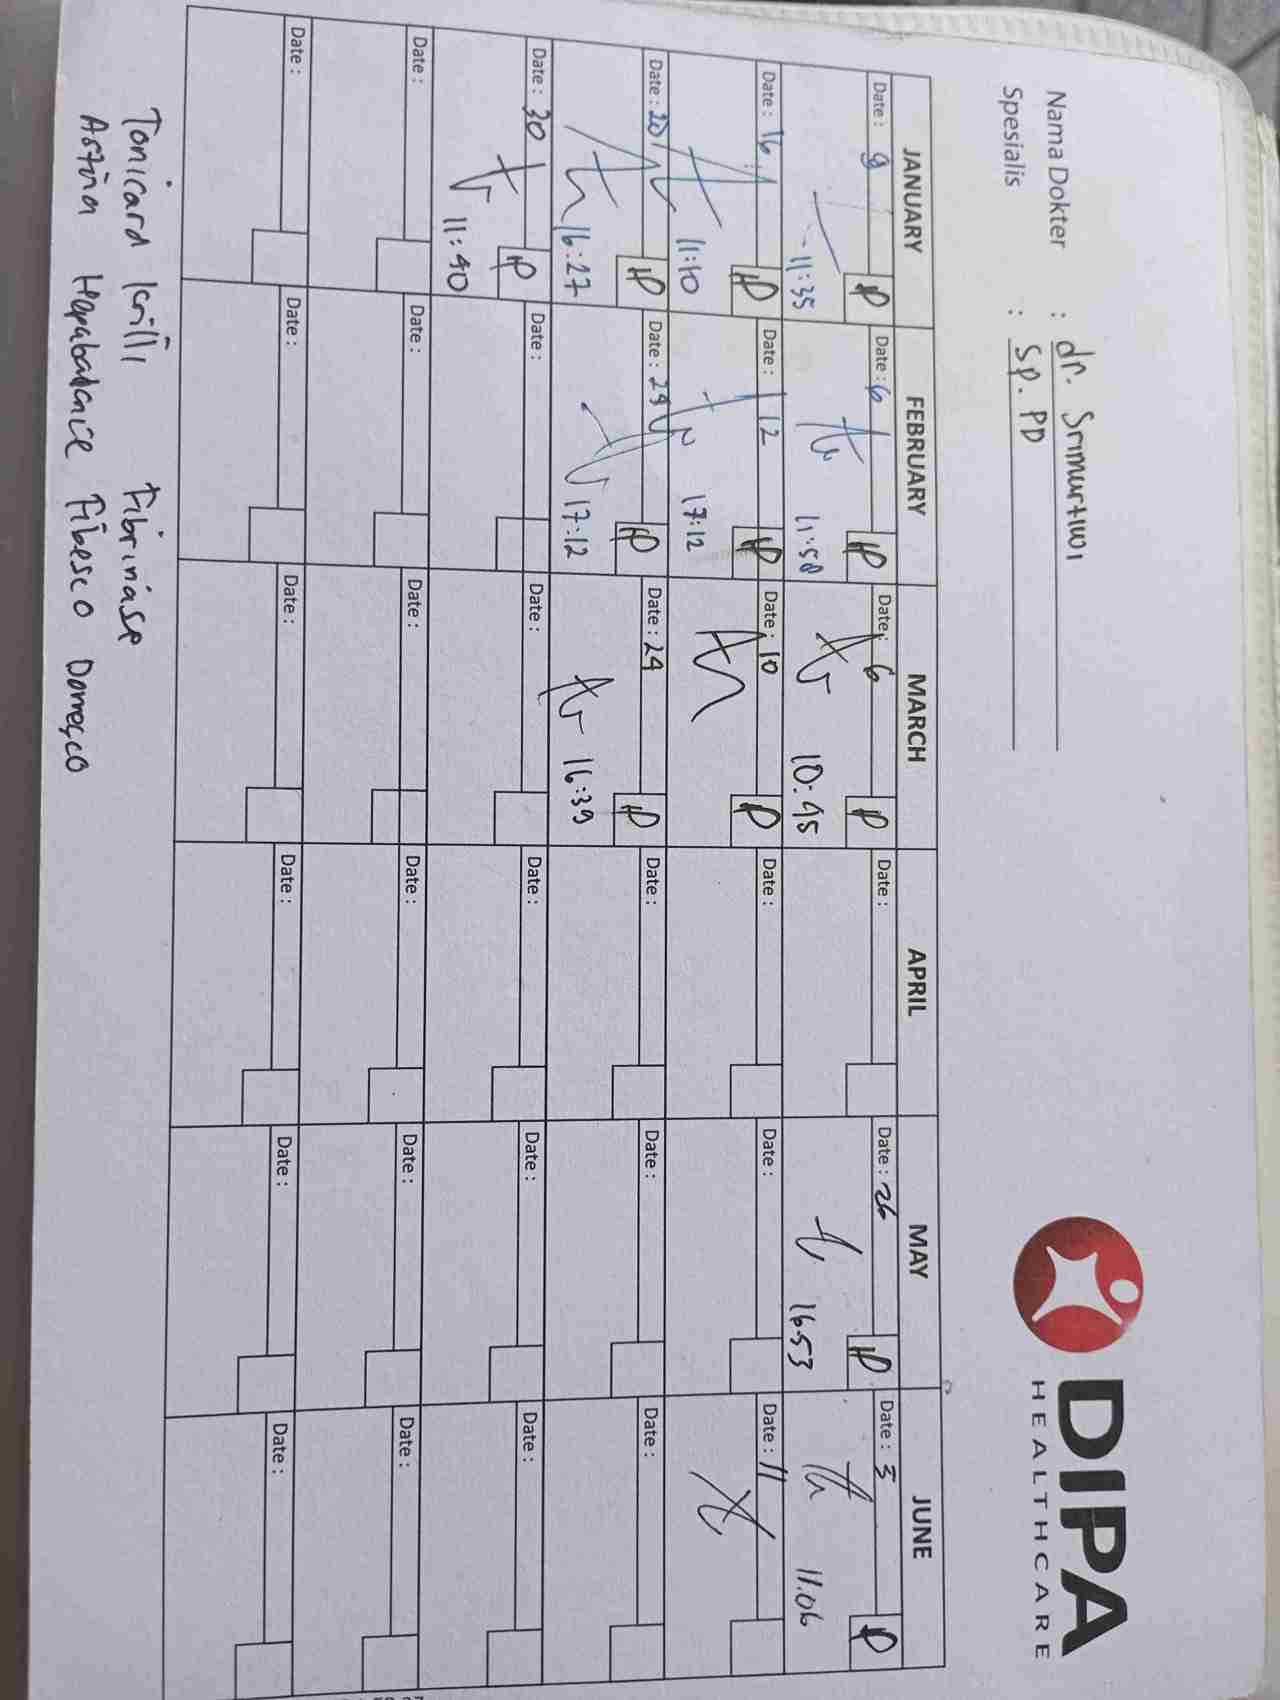 DIPA
HEALTHCARE
Nama Dokter : dr. Srimurtiwi
Spesialis : Sp. PD
JANUARY FEBRUARY MARCH APRIL MAY JUNE
Date : 9 Date : 6 Date : 6 Date : Date : 26 Date : 3
11:35 11:58 10:45 16.53 11.06
Date : 16 Date : 12 Date : 10 Date : Date : Date : 11
11:10 17:12
Date : 20 Date : 24 Date : 24 Date : Date : Date :
16:27 17:12 16:39
Date : 30 Date : Date : Date : Date : Date :
11:40
Date : Date : Date : Date : Date : Date :
Date : Date : Date : Date : Date : Date :
Tonicard krilli Fibrinase
Astina Hepabalance Fibesco Domesco